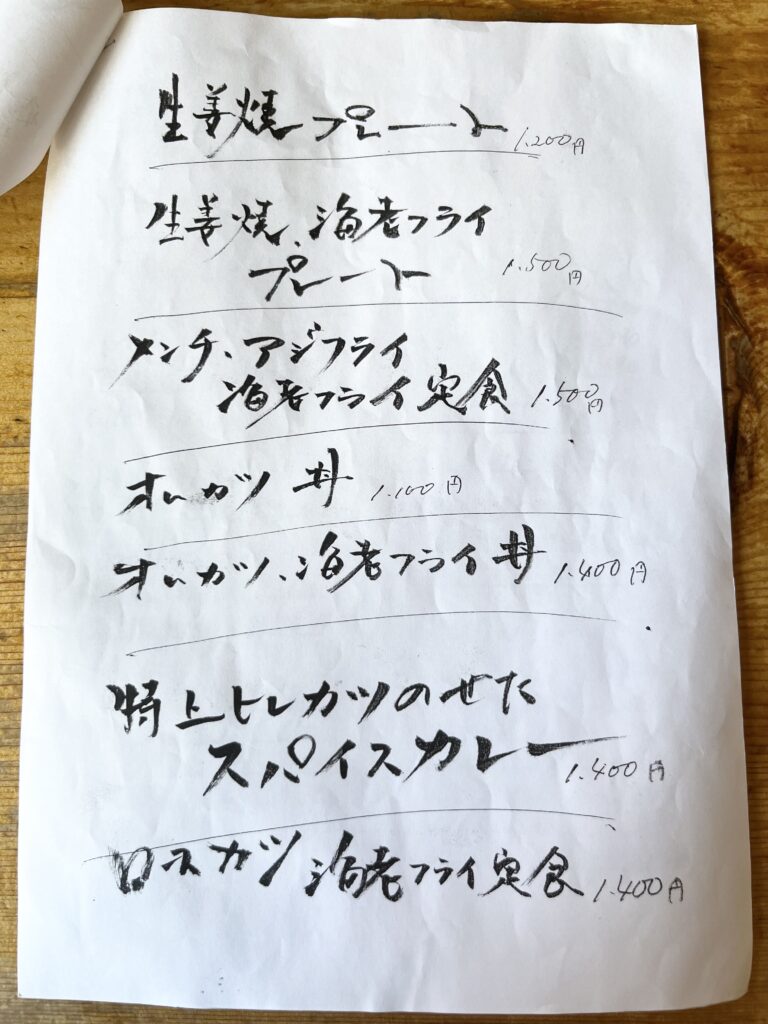 生姜焼プレート 1.200円
生姜焼、海老フライ
プレート 1.500円
メンチ、アジフライ
海老フライ定食 1.500円
ヒレカツ丼 1.100円
ヒレカツ、海老フライ丼 1.400円
特上ヒレカツのせた
スパイスカレー 1.400円
ロースカツ 海老フライ定食 1.400円